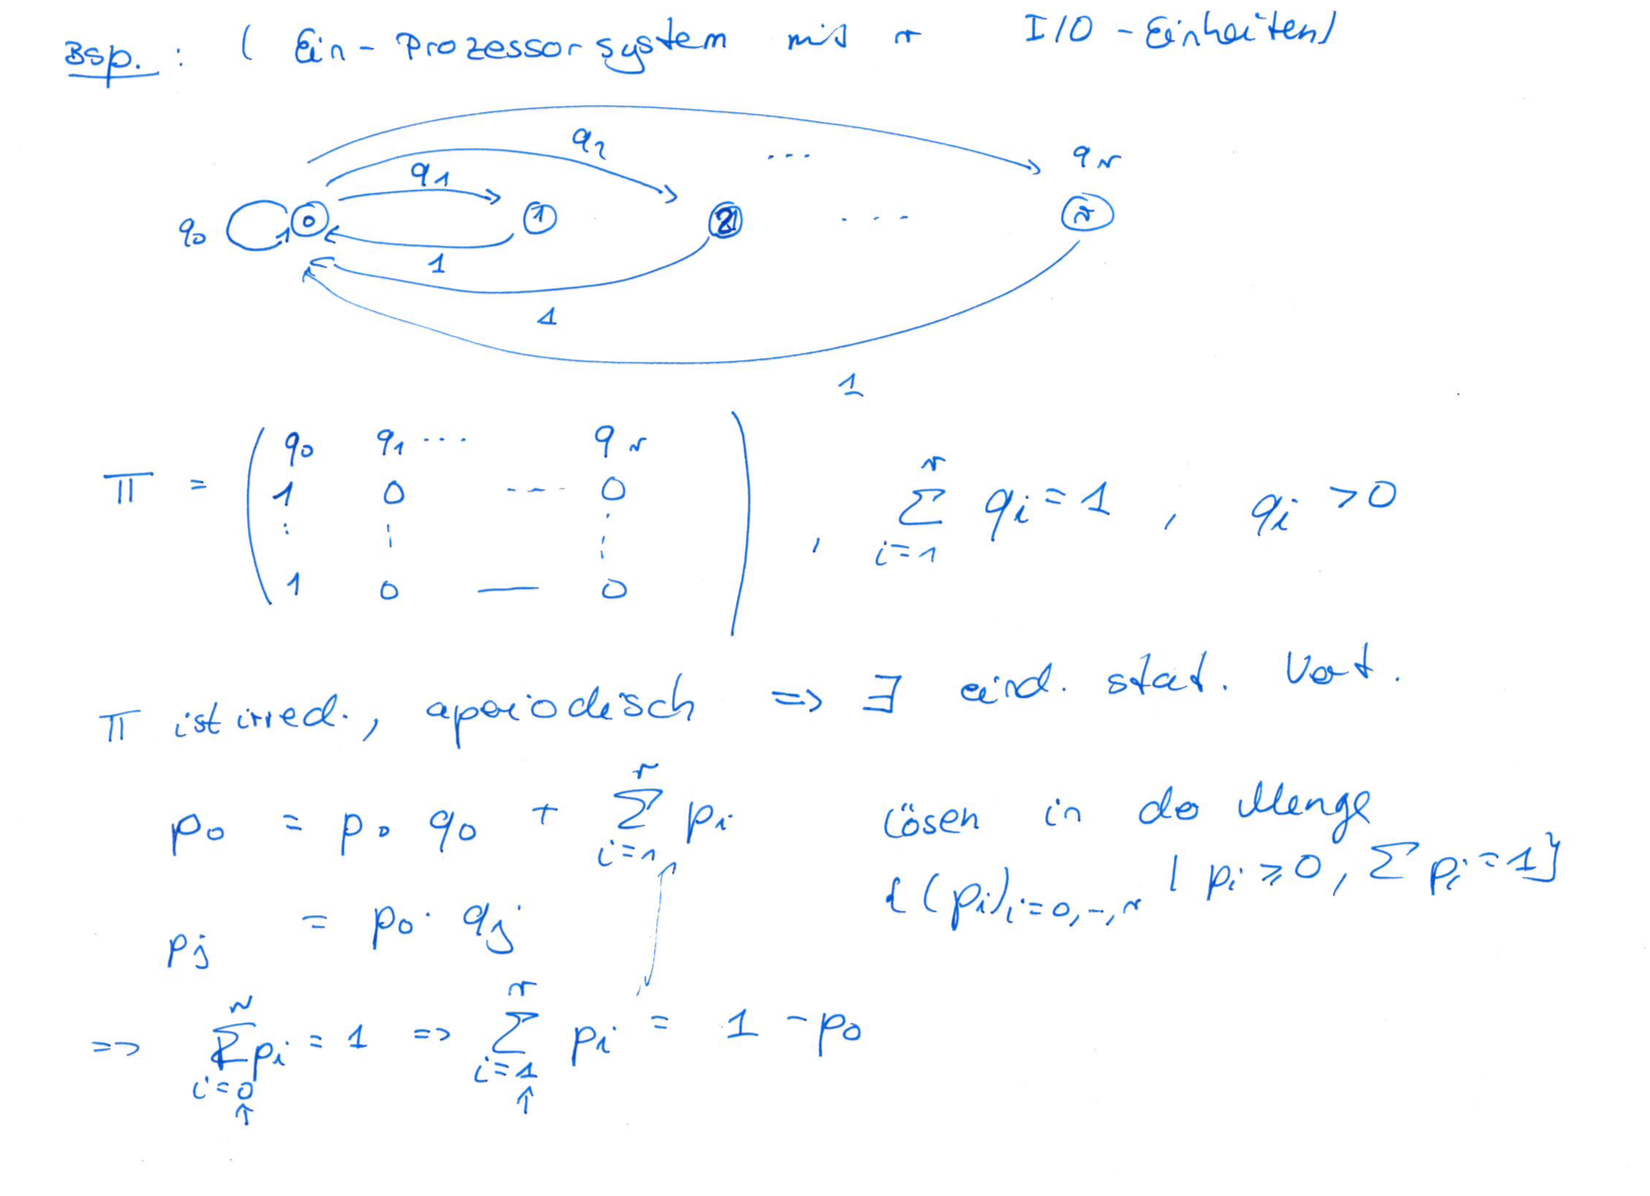 Bsp. : ( Ein - Prozessorsystem mit r I/O - Einheiten)
q2 ... qr
q1
q0 0 1 2 ... r
1
1
1
Π = ( q0 q1 ... qr
1 0 --- 0 , r Σ i=1 qi = 1 , qi > 0
: ¦ ¦
1 0 — 0 )
Π ist irred., aperiodisch => ∃ eind. stat. Vert.
p0 = p0 q0 + r Σ i=1 pi lösen in der Menge
pj = p0 · qj { (pi)i=0,-,r | pi ≥ 0, Σ pi = 1}
=> r Σ i=0 pi = 1 => r Σ i=1 pi = 1 - p0
↑ ↑